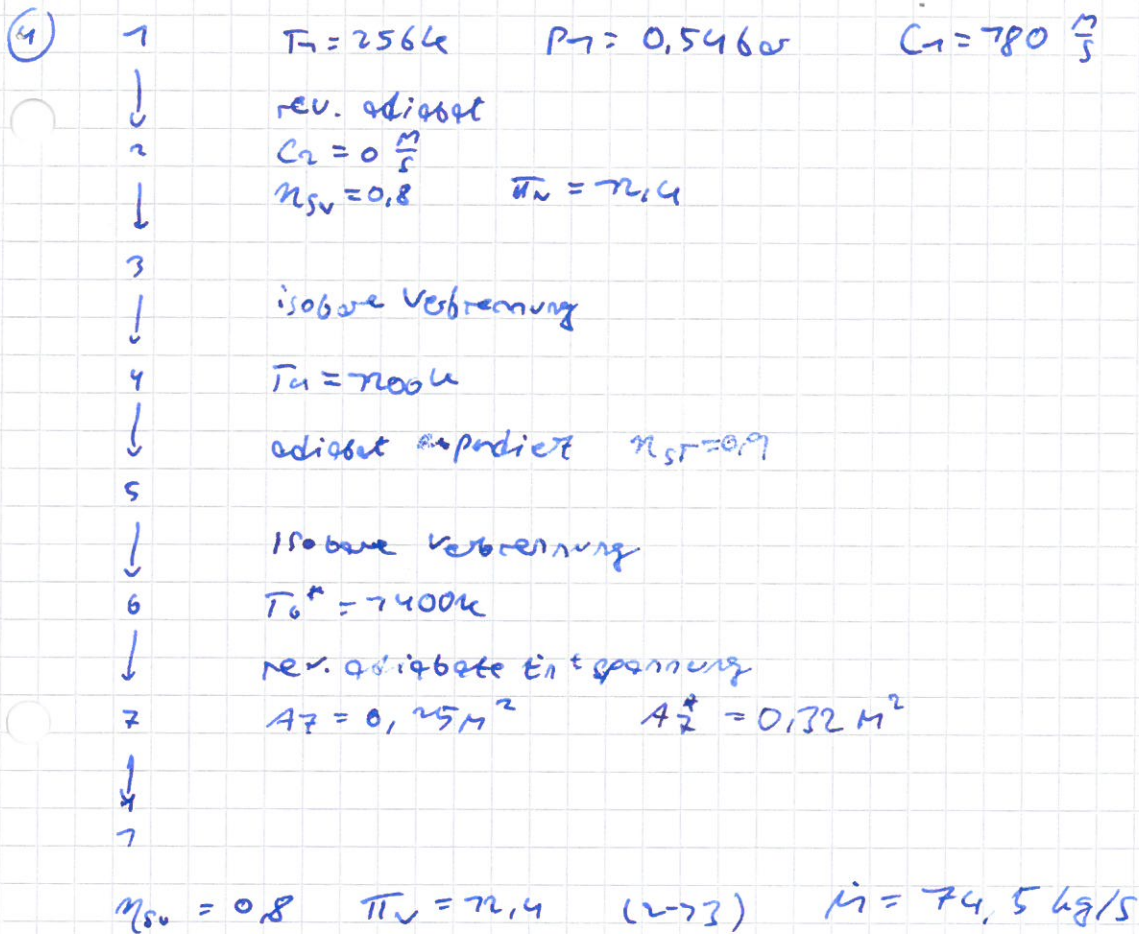 ④ 1 T₁ = 256K P₁ = 0,54bar C₁ = 180 m/s
↓ rev. adiabat
2 C₂ = 0 m/s
↓ ηsv = 0,8 πv = 12,4
3
↓ isobare Verbrennung
4 T₄ = 1200K
↓ adiabat expandiert ηsT = 0,9
5
↓ Isobare Verbrennung
6 T₆* = 1400K
↓ rev. adiabate Entspannung
7 A7 = 0,25m² A7* = 0,32 m²
↓
1
ηsv = 0,8 πv = 12,4 (2->3) ṁ = 74,5 kg/s